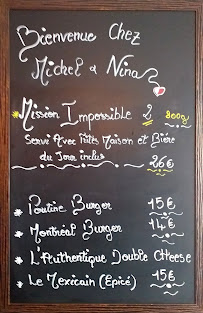 Bienvenue Chez
Michel & Nina
*Mission Impossible 2 800g
Servi Avec Frites Maison et Bière
du Jour inclus 26€
* Poutine Burger 15€
* Montréal Burger 14€
* L'Authentique Double Cheese
* Le Mexicain (Épicé) 15€